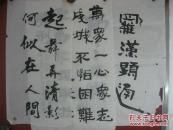 羅漢顯
萬衆一心衆志
成城不怕困難
起舞弄清影
何似在人間